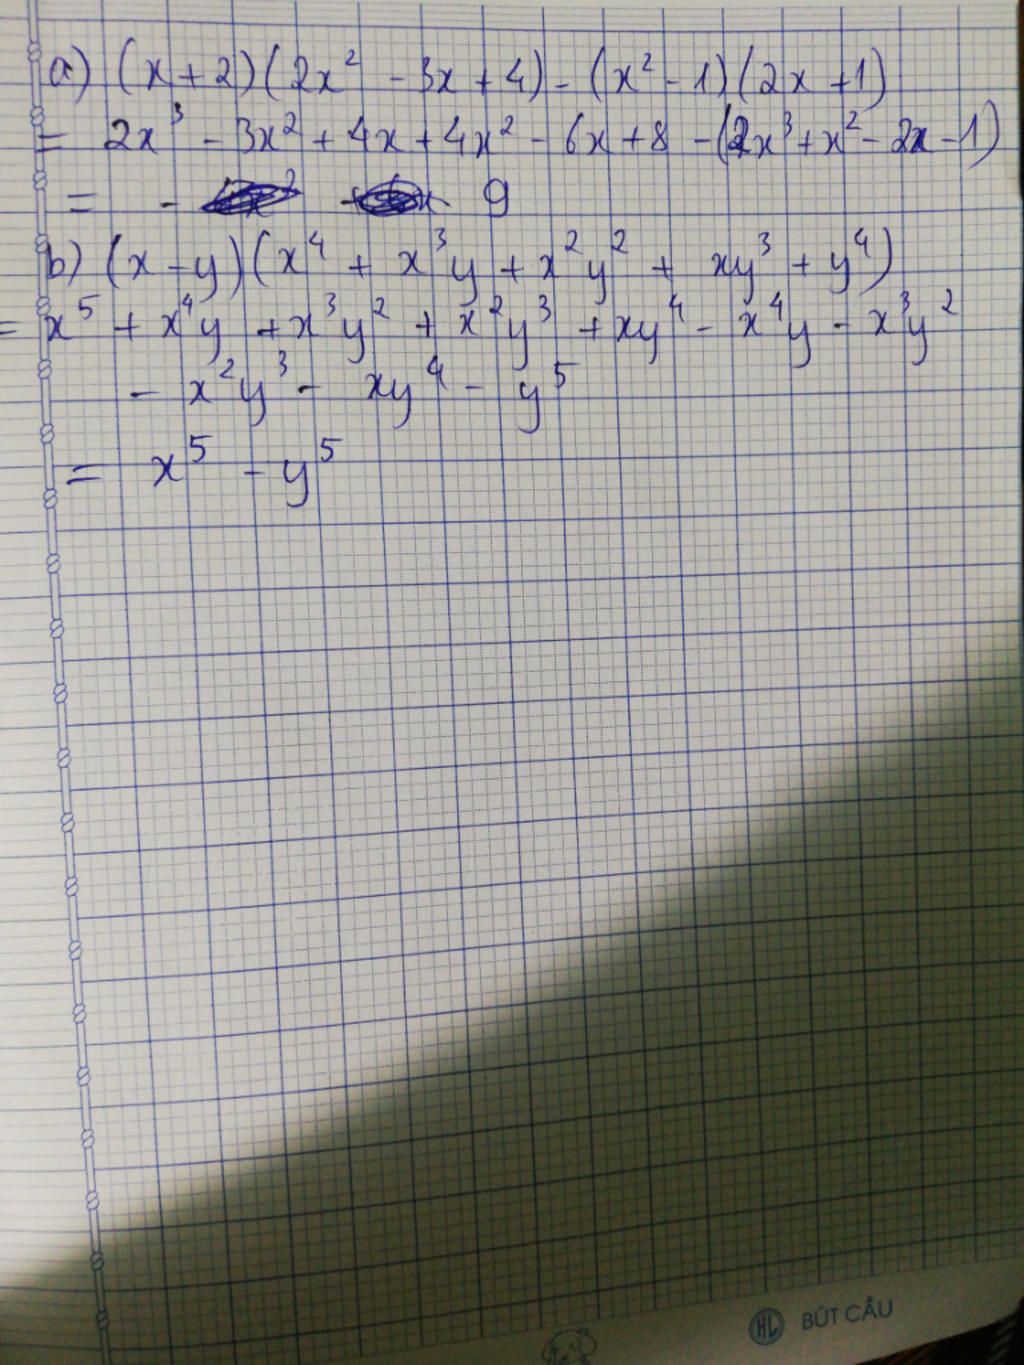 a) (x + 2)(2x² - 3x + 4) - (x² - 1)(2x + 1)
= 2x³ - 3x² + 4x + 4x² - 6x + 8 - (2x³ + x² - 2x - 1)
= - 9
b) (x - y)(x⁴ + x³y + x²y² + xy³ + y⁴)
= x⁵ + x⁴y + x³y² + x²y³ + xy⁴ - x⁴y - x³y²
- x²y³ - xy⁴ - y⁵
= x⁵ - y⁵
HL BÚT CẦU